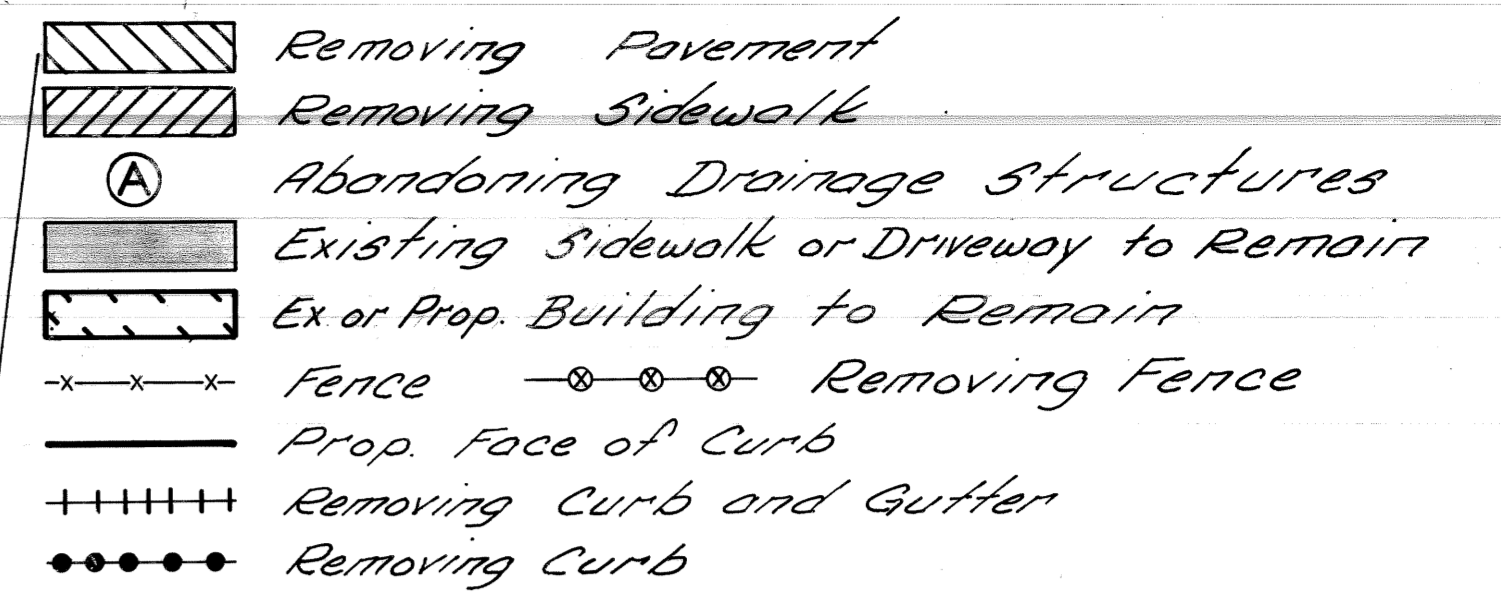 Removing Pavement
Removing Sidewalk
A Abandoning Drainage Structures
Existing Sidewalk or Driveway to Remain
Ex or Prop. Building to Remain
-x-x-x- Fence x x x Removing Fence
Prop. Face of Curb
Removing Curb and Gutter
Removing Curb